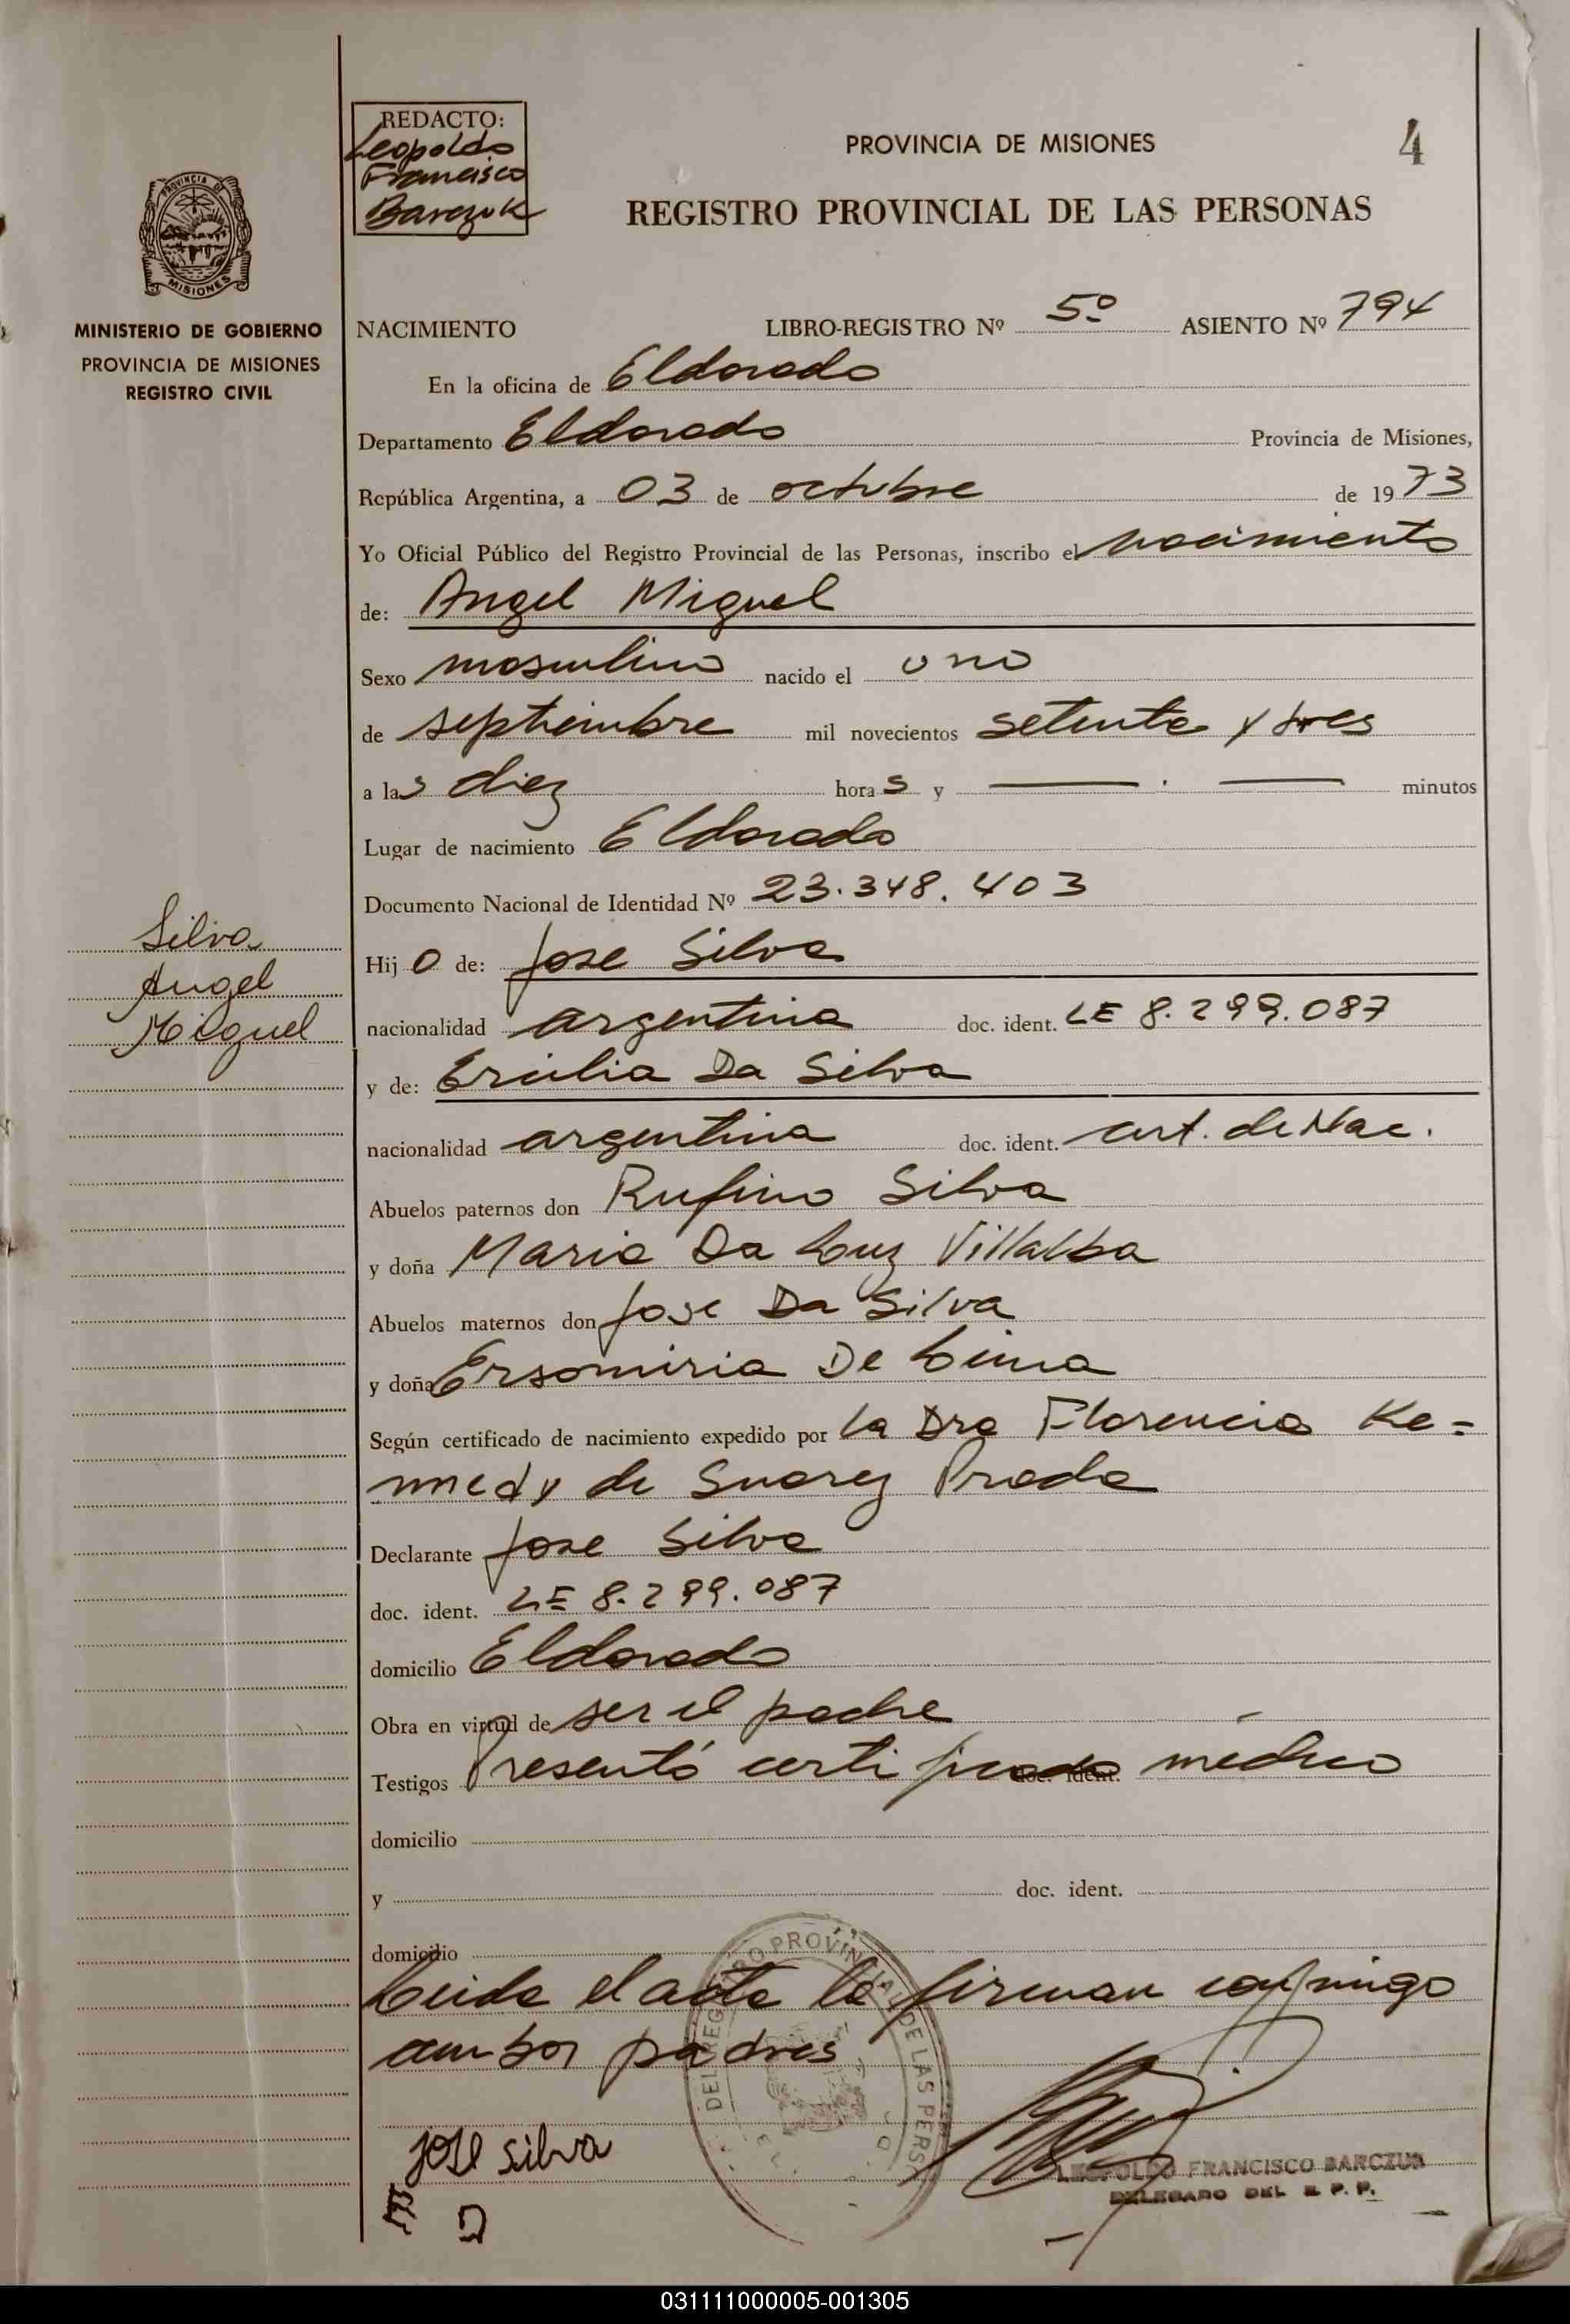 REDACTO:
Leopoldo
Francisco
Barczuk
PROVINCIA DE MISIONES
4
REGISTRO PROVINCIAL DE LAS PERSONAS
PROVINCIA DE
MISIONES
MINISTERIO DE GOBIERNO
PROVINCIA DE MISIONES
REGISTRO CIVIL
NACIMIENTO LIBRO-REGISTRO Nº 5º ASIENTO Nº 794
En la oficina de Eldorado
Departamento Eldorado Provincia de Misiones,
República Argentina, a 03 de octubre de 1973
Yo Oficial Público del Registro Provincial de las Personas, inscribo el nacimiento
de: Angel Miguel
Sexo masculino nacido el uno
de septiembre mil novecientos setenta y tres
a las diez horas y — . — minutos
Lugar de nacimiento Eldorado
Documento Nacional de Identidad Nº 23.348.403
Silva
Angel
Miguel
Hijo de: Jose Silva
nacionalidad argentina doc. ident. LE 8.299.087
y de: Ercilia Da Silva
nacionalidad argentina doc. ident. cert. de Nac.
Abuelos paternos don Rufino Silva
y doña Maria Da Luz Villalba
Abuelos maternos don Jose Da Silva
y doña Ersomiria De Lima
Según certificado de nacimiento expedido por la Dra Florencia Ke=
nnedy de Suarez Prada
Declarante Jose Silva
doc. ident. LE 8.299.087
domicilio Eldorado
Obra en virtud de ser el padre
Testigos Presentó certificado doc. ident. médico
domicilio
y doc. ident.
domicilio
Leida el acta la firman conmigo
ambos padres
Jose Silva
LEOPOLDO FRANCISCO BARCZUK
DELEGADO DEL R. P. P.
031111000005-001305